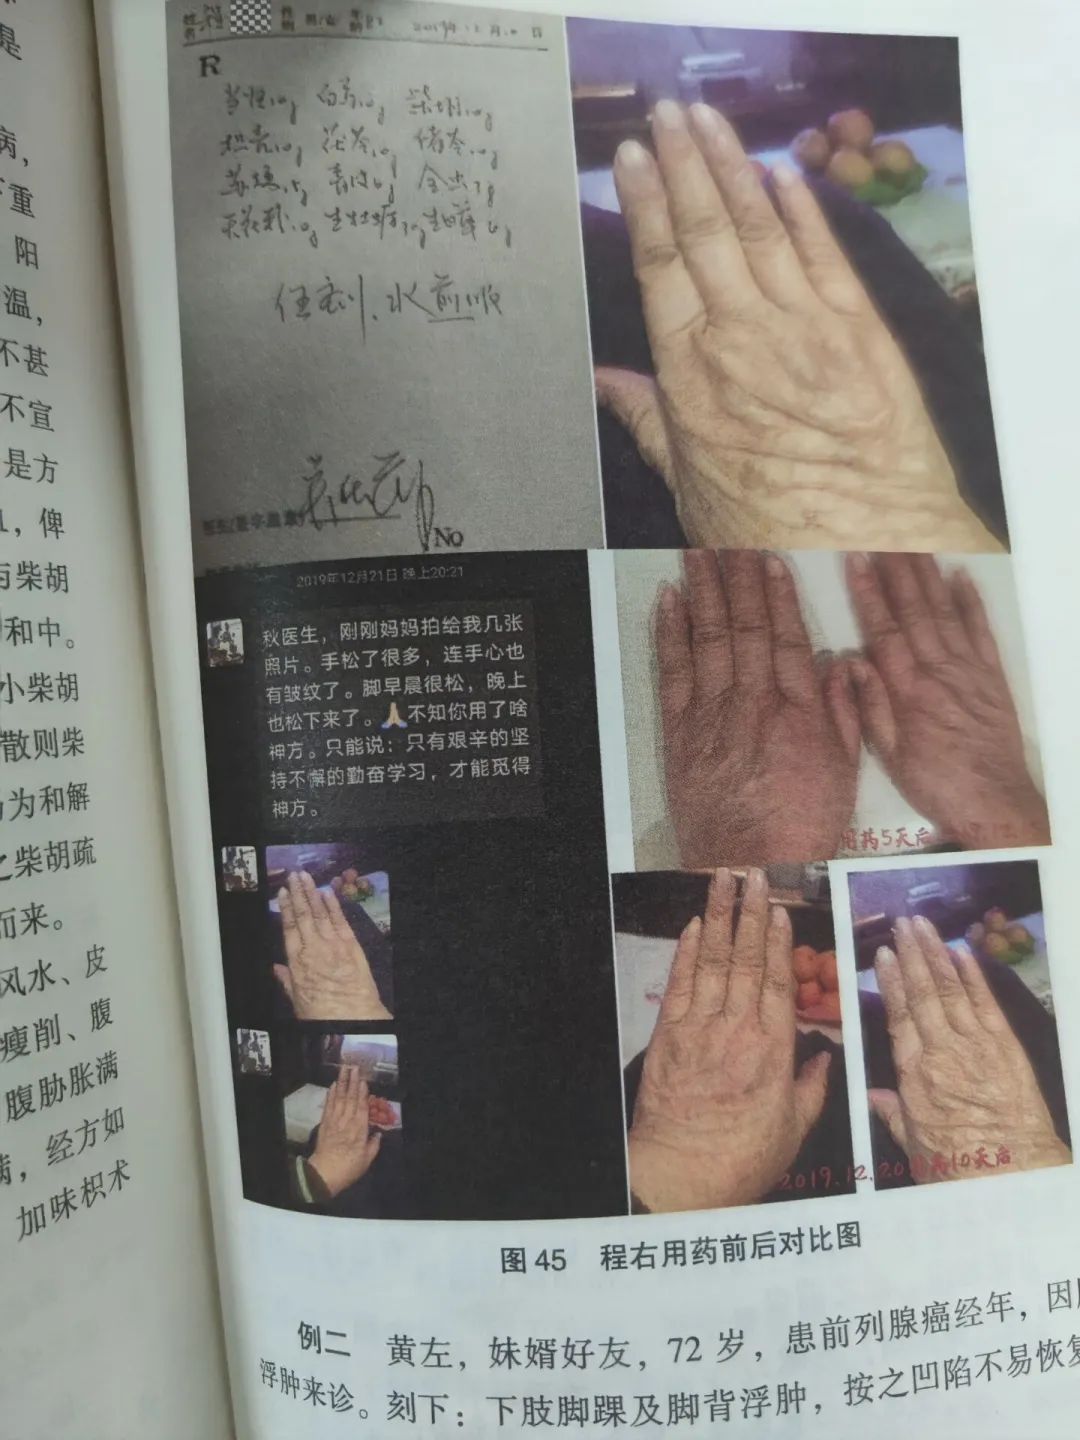 是
病,
重
阳
温,
不甚
不宣
是方
俾
与柴胡
和中。
小柴胡
散则柴
为和解
之柴胡疏
而来。
风水、皮
瘦削、腹
腹胁胀满
经方如
加味枳术
姓名
性别
年龄
R
当归10g 白芍10g 柴胡10g
枳壳10g 茯苓10g 猪苓10g
青皮 全虫3g
天花粉10g 生牡蛎
伍剂、水煎服
No
2019年12月21日 晚上20:21
秋医生,刚刚妈妈拍给我几张
照片。手松了很多,连手心也
有皱纹了。脚早晨很松,晚上
也松下来了。🙏不知你用了啥
神方。只能说:只有艰辛的坚
持不懈的勤奋学习,才能觅得
神方。
用药5天后
2019.12.20 用药10天后
图 45 程右用药前后对比图
例二 黄左,妹婿好友,72 岁,患前列腺癌经年,因
浮肿来诊。刻下:下肢脚踝及脚背浮肿,按之凹陷不易恢复